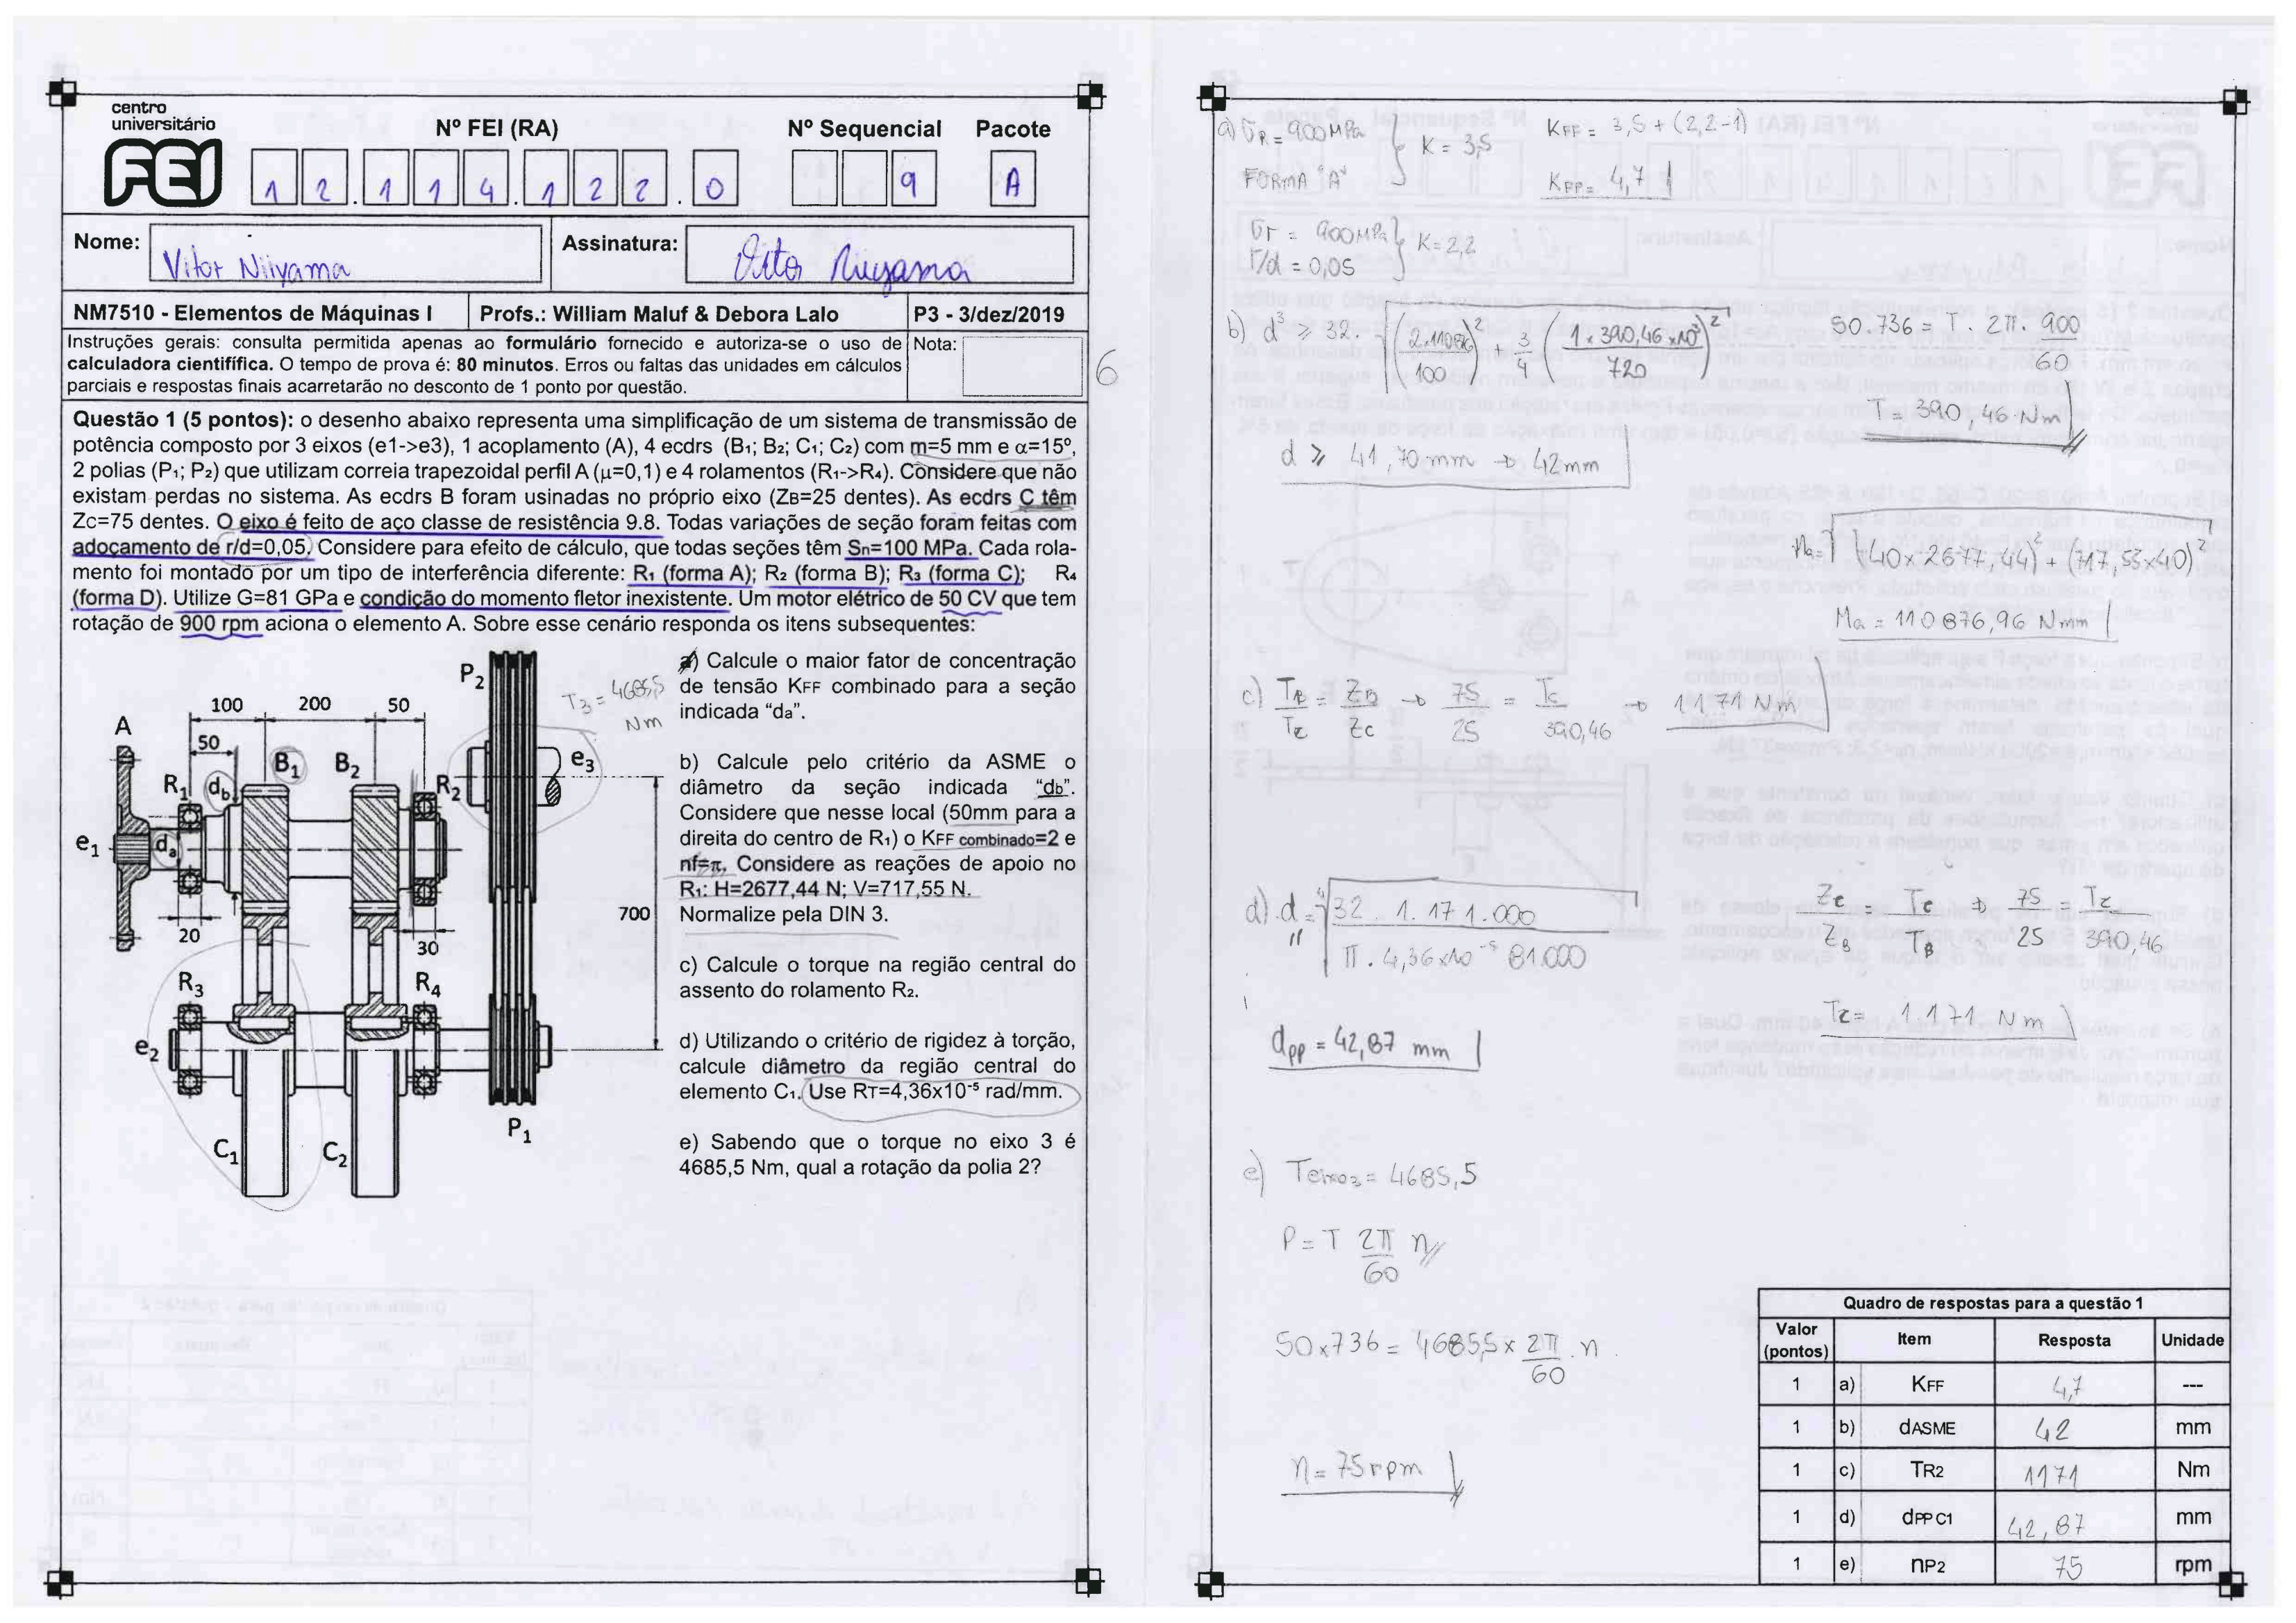 centro
universitário
FEI
Nº FEI (RA)
Nº Sequencial
Pacote
1 2 . 1 1 4 . 1 2 2 . 0
9
A
Nome:
Vitor Niiyama
Assinatura:
Vitor Niiyama
NM7510 - Elementos de Máquinas I
Profs.: William Maluf & Debora Lalo
P3 - 3/dez/2019
Instruções gerais: consulta permitida apenas ao formulário fornecido e autoriza-se o uso de
calculadora cientifífica. O tempo de prova é: 80 minutos. Erros ou faltas das unidades em cálculos
parciais e respostas finais acarretarão no desconto de 1 ponto por questão.
Nota:
6
Questão 1 (5 pontos): o desenho abaixo representa uma simplificação de um sistema de transmissão de
potência composto por 3 eixos (e1->e3), 1 acoplamento (A), 4 ecdrs (B1; B2; C1; C2) com m=5 mm e α=15º,
2 polias (P1; P2) que utilizam correia trapezoidal perfil A (μ=0,1) e 4 rolamentos (R1->R4). Considere que não
existam perdas no sistema. As ecdrs B foram usinadas no próprio eixo (ZB=25 dentes). As ecdrs C têm
Zc=75 dentes. O eixo é feito de aço classe de resistência 9.8. Todas variações de seção foram feitas com
adoçamento de r/d=0,05. Considere para efeito de cálculo, que todas seções têm Sn=100 MPa. Cada rola-
mento foi montado por um tipo de interferência diferente: R1 (forma A); R2 (forma B); R3 (forma C); R4
(forma D). Utilize G=81 GPa e condição do momento fletor inexistente. Um motor elétrico de 50 CV que tem
rotação de 900 rpm aciona o elemento A. Sobre esse cenário responda os itens subsequentes:
P2
T3 = 4685,5
Nm
100
200
50
A
50
B1
B2
e3
R1
db
R2
e1
da
700
20
30
R3
R4
e2
P1
C1
C2
a) Calcule o maior fator de concentração
de tensão KFF combinado para a seção
indicada “da”.
b) Calcule pelo critério da ASME o
diâmetro da seção indicada “db”.
Considere que nesse local (50mm para a
direita do centro de R1) o KFF combinado=2 e
nf=π. Considere as reações de apoio no
R1: H=2677,44 N; V=717,55 N.
Normalize pela DIN 3.
c) Calcule o torque na região central do
assento do rolamento R2.
d) Utilizando o critério de rigidez à torção,
calcule diâmetro da região central do
elemento C1. Use RT=4,36x10⁻⁵ rad/mm.
e) Sabendo que o torque no eixo 3 é
4685,5 Nm, qual a rotação da polia 2?
a) σR = 900 MPa
FORMA "A"
K = 3,5
KFF = 3,5 + (2,2-1)
KFF = 4,7
σr = 900 MPa
r/d = 0,05
K = 2,2
b) d³ ≥ 32. √(2.110876/100)² + 3/4 (1 x 390,46 x10³/720)²
d ≥ 41,70 mm → 42mm
50.736 = T. 2π. 900/60
T = 390,46 Nm
Ma = √(40x2677,44)² + (717,55x40)²
Ma = 110876,96 Nmm
c) TB/Tc = ZB/Zc → 75/25 = Tc/390,46 → 1171 Nm
Zc/ZB = Tc/TB → 75/25 = Tc/390,46
Tc = 1171 Nm
d) d = ⁴√32 . 1.171.000/π . 4,36x10⁻⁵ 81.000
dpp = 42,87 mm
e) Teixo3 = 4685,5
P = T 2π/60 n
50x736 = 4685,5 x 2π/60 . n
n = 75 rpm
Quadro de respostas para a questão 1
Valor (pontos) Item Resposta Unidade
1 a) KFF 4,7 ---
1 b) dASME 42 mm
1 c) TR2 1171 Nm
1 d) dPP C1 42,87 mm
1 e) nP2 75 rpm